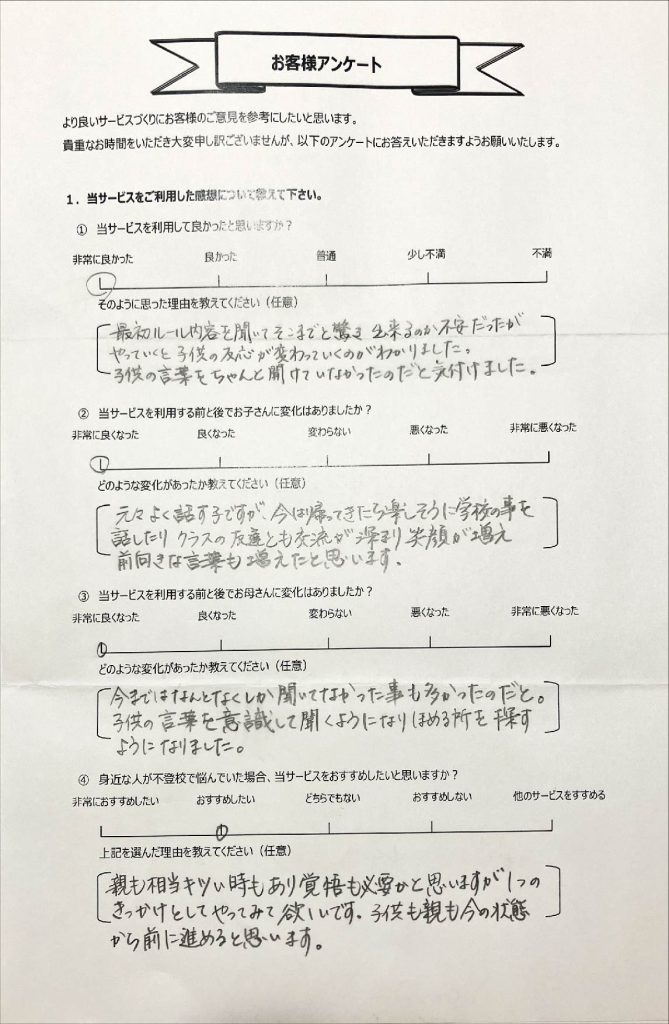 お客様アンケート
より良いサービスづくりにお客様のご意見を参考にしたいと思います。
貴重なお時間をいただき大変申し訳ございませんが、以下のアンケートにお答えいただきますようお願いいたします。
1．当サービスをご利用した感想について教えて下さい。
① 当サービスを利用して良かったと思いますか？
非常に良かった 良かった 普通 少し不満 不満
そのように思った理由を教えてください（任意）
最初ルール内容を聞いてそこまでと驚き 出来るのか不安だったが
やっていくと子供の反応が変わっていくのがわかりました。
子供の言葉をちゃんと聞けていなかったのだと気付けました。
② 当サービスを利用する前と後でお子さんに変化はありましたか？
非常に良くなった 良くなった 変わらない 悪くなった 非常に悪くなった
どのような変化があったか教えてください（任意）
元々よく話す子ですが、今は帰ってきたら楽しそうに学校の事を
話したり クラスの友達とも交流が深まり 笑顔が増え
前向きな言葉も増えたと思います。
③ 当サービスを利用する前と後でお母さんに変化はありましたか？
非常に良くなった 良くなった 変わらない 悪くなった 非常に悪くなった
どのような変化があったか教えてください（任意）
今まではなんとなくしか聞いてなかった事も多かったのだと。
子供の言葉を意識して聞くようになり ほめる所を探す
ようになりました。
④ 身近な人が不登校で悩んでいた場合、当サービスをおすすめしたいと思いますか？
非常におすすめしたい おすすめしたい どちらでもない おすすめしない 他のサービスをすすめる
上記を選んだ理由を教えてください（任意）
親も相当キツい時もあり覚悟も必要かと思いますが1つの
きっかけとしてやってみて欲しいです。子供も親も今の状態
から前に進めると思います。